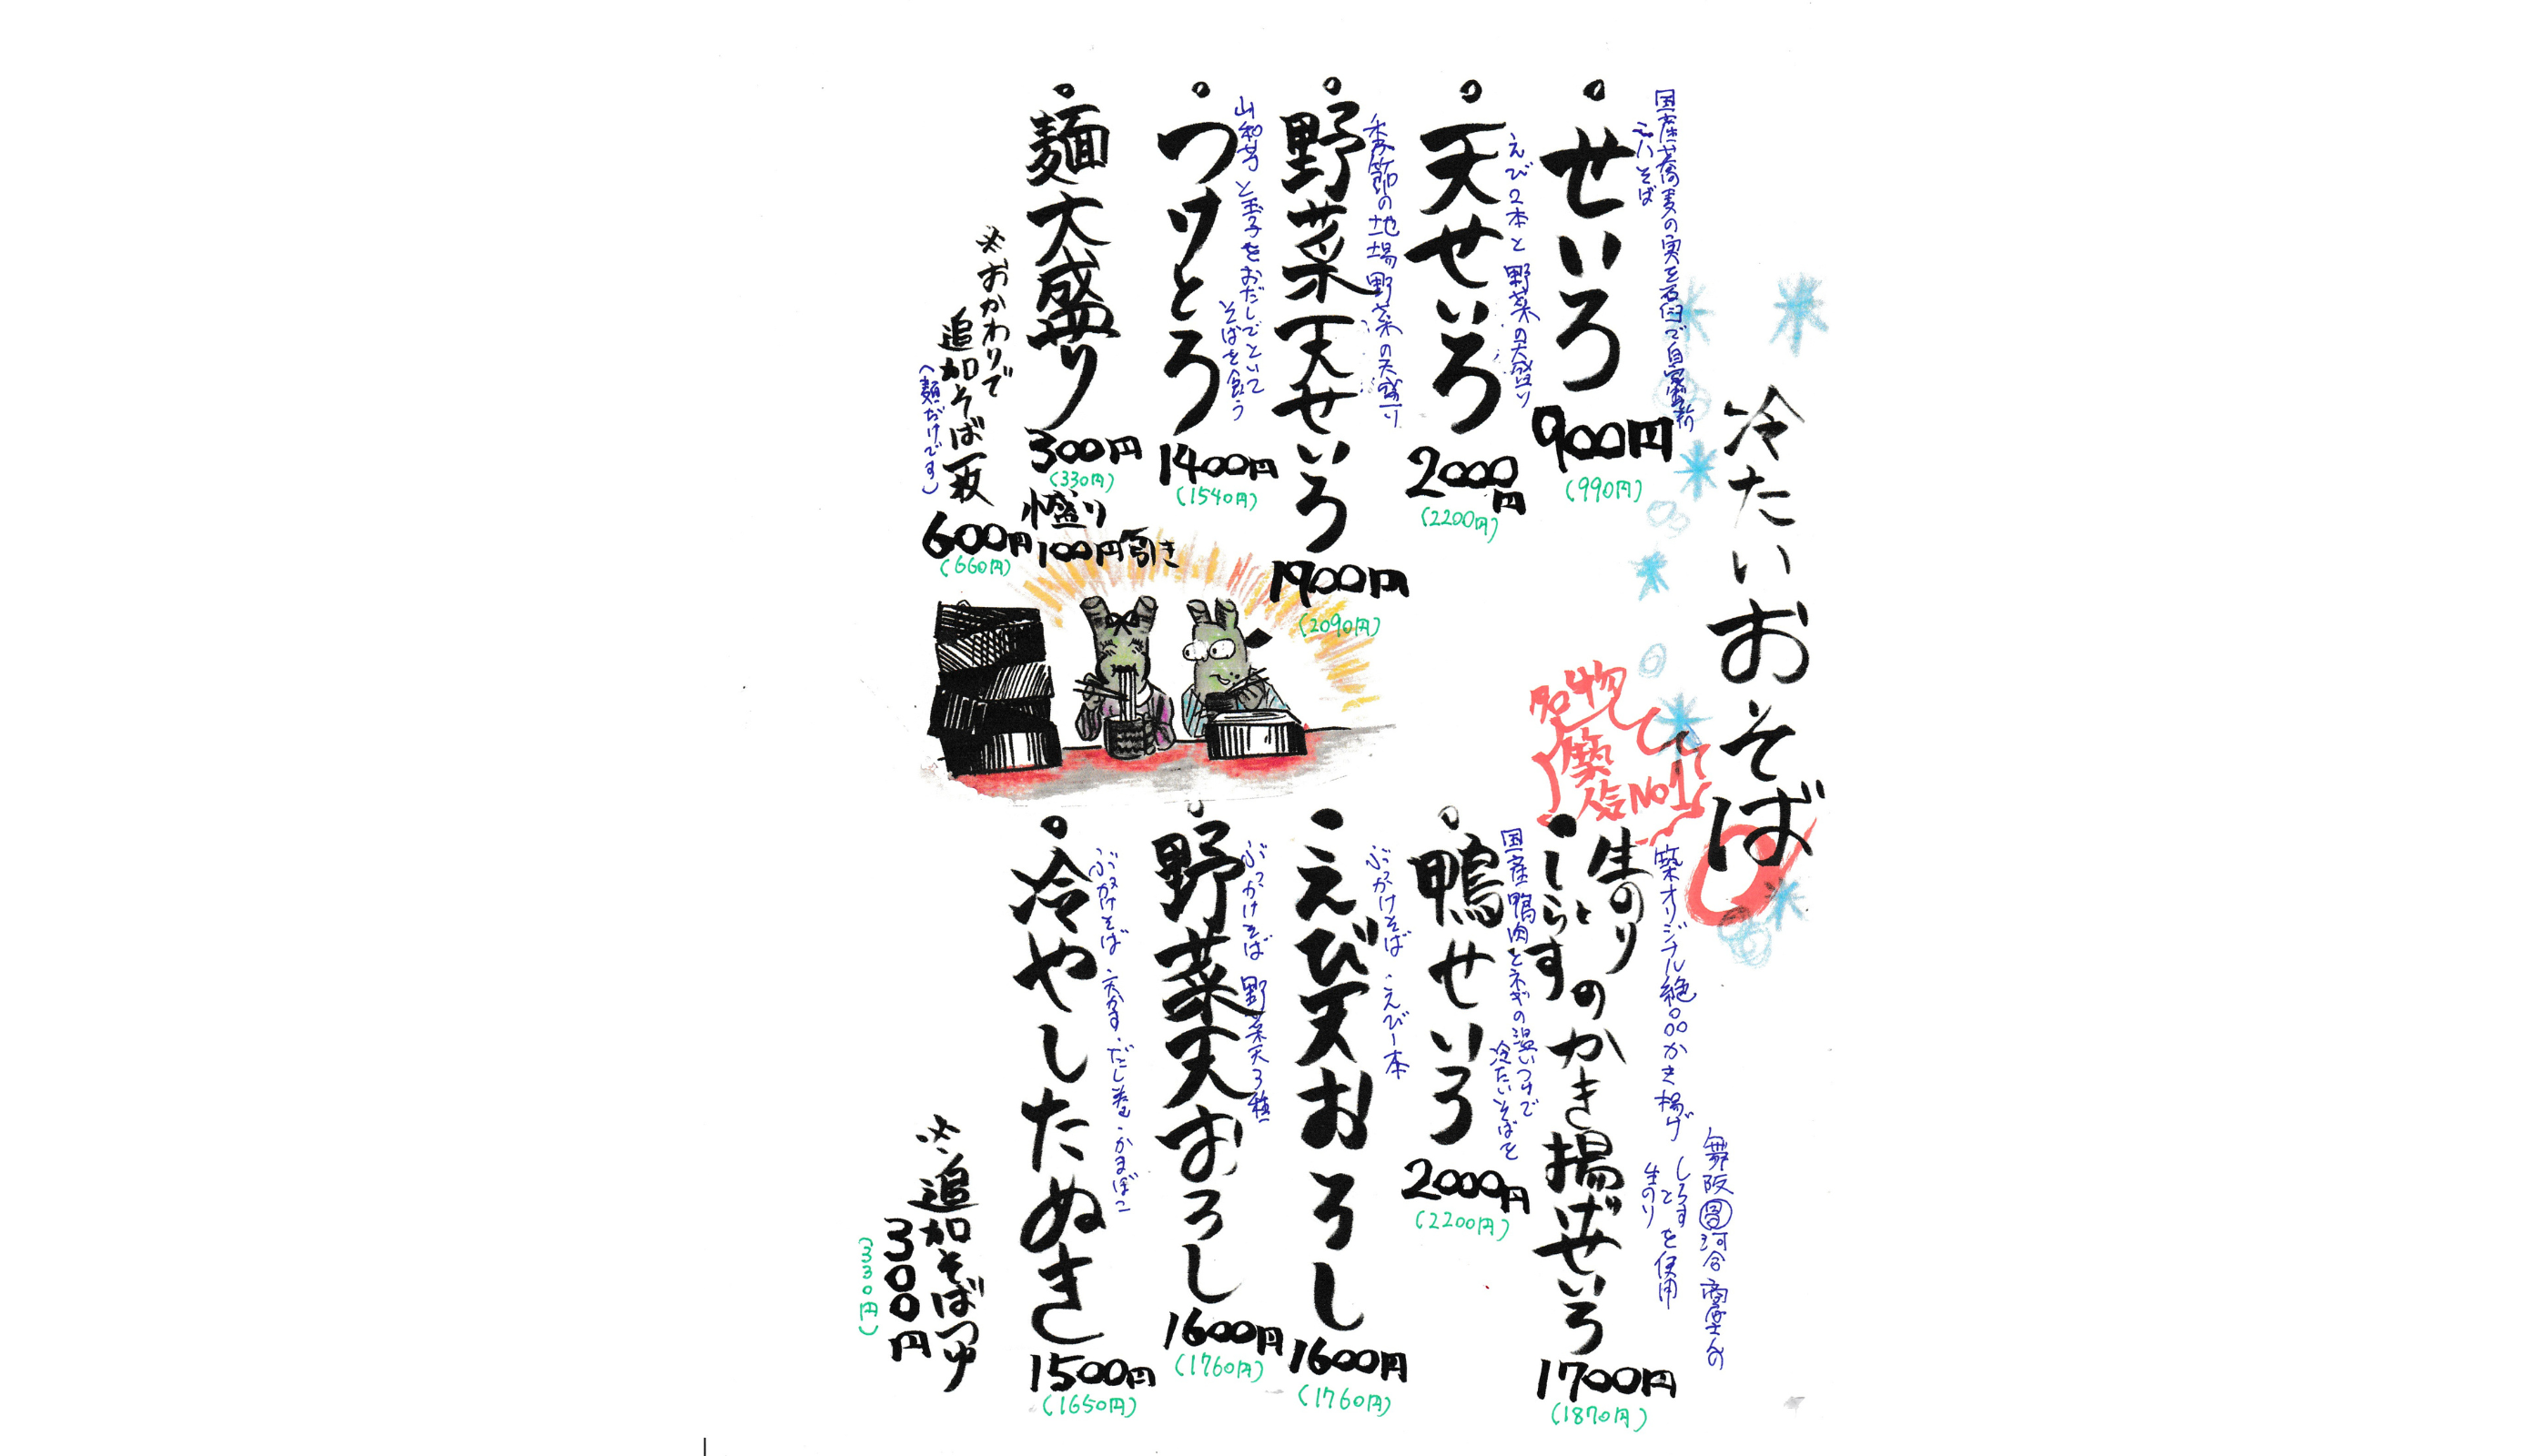 冷たいおそば
国産蕎麦の実を石臼で自家製粉
二八そば
せいろ
900円
(990円)
えび2本と野菜の天盛り
天せいろ
2000円
(2200円)
季節の地場野菜の天盛り
野菜天せいろ
1900円
(2090円)
山和芋と玉子をおだしでといて
そばを食う
つけとろ
1400円
(1540円)
麺大盛り
300円
(330円)
小盛り
100円引き
※おかわりで
追加そば一枚
(麺だけです)
600円
(660円)
名物
築
人気No1
舞阪 河合商店さんの
しらすと生のりを使用
築オリジナル絶品かき揚げ
生のりと
しらすのかき揚げせいろ
1700円
(1870円)
国産鴨肉とネギの温いつけで
冷たいそばを
鴨せいろ
2000円
(2200円)
ぶっかけそば・えび一本
えび天おろし
1600円
(1760円)
ぶっかけそば 野菜天3種
野菜天おろし
1600円
(1760円)
ぶっかけそば 天かす・だし巻き・かまぼこ
冷やしたぬき
1500円
(1650円)
※追加そばつゆ
300円
(330円)